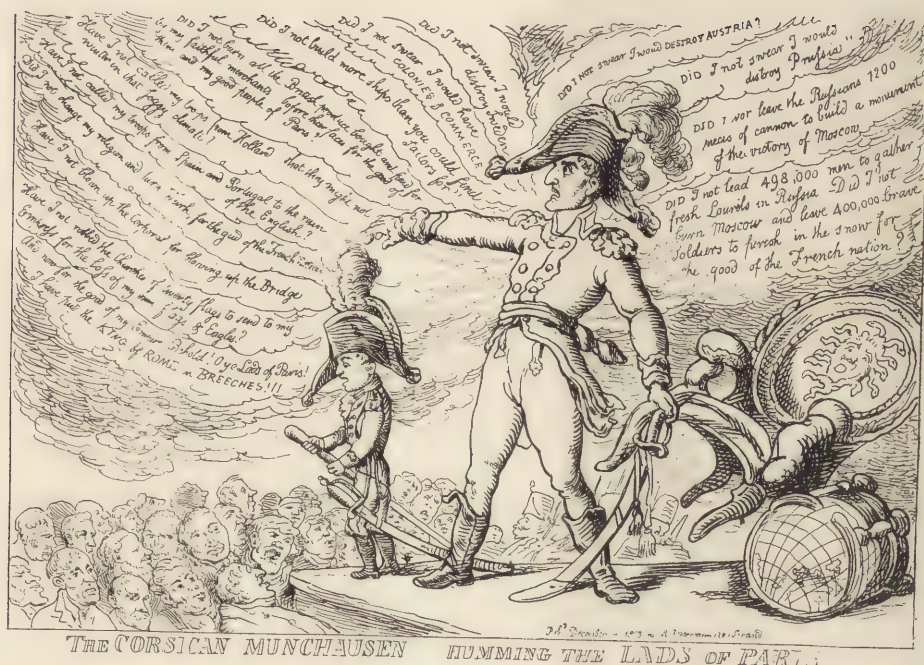 DID I NOT swear I would DESTROY AUSTRIA?
DID I not swear I would
destroy Prussia
DID I NOT leave the Russians 1200
pieces of cannon to build a monument
of the victory of Moscow
DID I not lead 498,000 men to gather
fresh Laurels in Russia Did I not
burn Moscow and leave 400,000 brave
Soldiers to perish in the snow for
the good of the French nation?
DID I not swear I would
destroy
Did I not swear I would have
COLONIES & COMMERCE
Did I not build more ships than you could find
Sailors for
DID I not burn all the British produce bought and paid for
by my faithful merchants before their faces for the good of
them and my good people of Paris
Have I not called my troops from Holland that they might not
winter in that foggy climate
Have I not called my troops from Spain and Portugal to the ruin
of the English?
Did I not change my religion and turn Turk for the good of the French
Have I not blown up the Corporal for blowing up the Bridge
Have I not robbed the Churches of twenty flags to send to my
Empress for the loss of my own & Eagles?
And now for the good of my Behold! O ye Lads of Paris!
I have put the KING of ROME in BREECHES!!!
THE CORSICAN MUNCHAUSEN HUMMING THE LADS OF